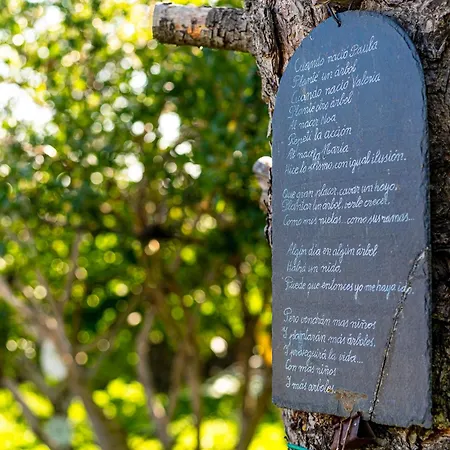 Cuando nació Paula
Planté un árbol
Cuando nació Valeria
Planté otro árbol
Al nacer Noa
Repetí la acción
Al nacer María
Hice lo mismo, con igual ilusión.
Que gran placer, cavar un hoyo,
Plantar un árbol, verle crecer.
Como mis nietas... como sus ramas...
Algún día en algún árbol
Habrá un nido,
Puede que entonces yo me haya ido.
Pero vendrán mas niños
Y plantarán más árboles...
Y proseguirá la vida...
Con mas niños
Y más árboles.